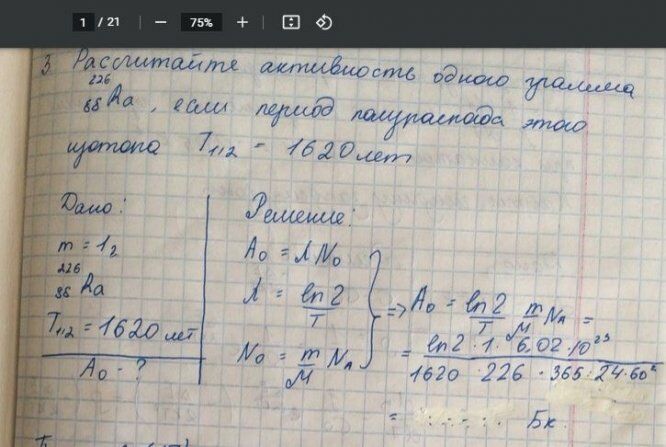 1 / 21 — 75% +
3. Рассчитайте активность одного грамма
²²⁶₈₈Ra, если период полураспада этого
изотопа T₁/₂ = 1620 лет
Дано:
m = 1г
²²⁶₈₈Ra
T₁/₂ = 1620 лет
A₀ - ?
Решение:
A₀ = λN₀
λ = ln2/T
N₀ = m/M Nₐ
=> A₀ = ln2/T m/M Nₐ =
= ln2·1·6,02·10²³ / 1620·226·365·24·60²
= ...... Бк